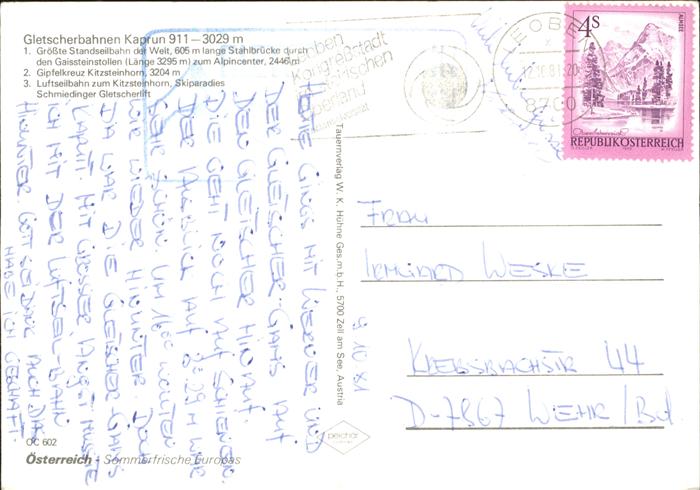 Gletscherbahnen Kaprun 911–3029 m
1. Größte Standseilbahn der Welt, 605 m lange Stahlbrücke durch
den Gaissteinstollen (Länge 3295 m) zum Alpincenter, 2446 m
2. Gipfelkreuz Kitzsteinhorn, 3204 m
3. Luftseilbahn zum Kitzsteinhorn, Skiparadies
Schmiedinger Gletscherlift
HEUTE GING'S MIT WERNER UND
DER GLETSCHER-GAMS AUF
DEN GLETSCHER HINAUF.
DIE GEHT NOCH AUF SCHIENEN.
DER AUSBLICK AUF 3029 M WAR
SEHR SCHÖN. UM 16⁰⁰ WOLLTEN
WIR WIEDER HINUNTER. DOCH
DA WAR DIE GLETSCHER GAMS
KAPUTT. MIT GROSSER ANGST MUSSTE
ICH MIT DER LUFTSEIL-BAHN
HINUNTER. GOTT SEI DANK AUCH DAS
HABE ICH GESCHAFFT.
OC 602
Österreich - Sommerfrische Europas
Tauernverlag W. K. Hühne Ges.m.b.H., 5700 Zell am See, Austria
9.10.81
LEOBEN
8700
4 S
ALMSEE
REPUBLIK ÖSTERREICH
FRAU
IRMGARD WESKE
KREBSBACHSTR 44
D-7867 WEHR/Bd.